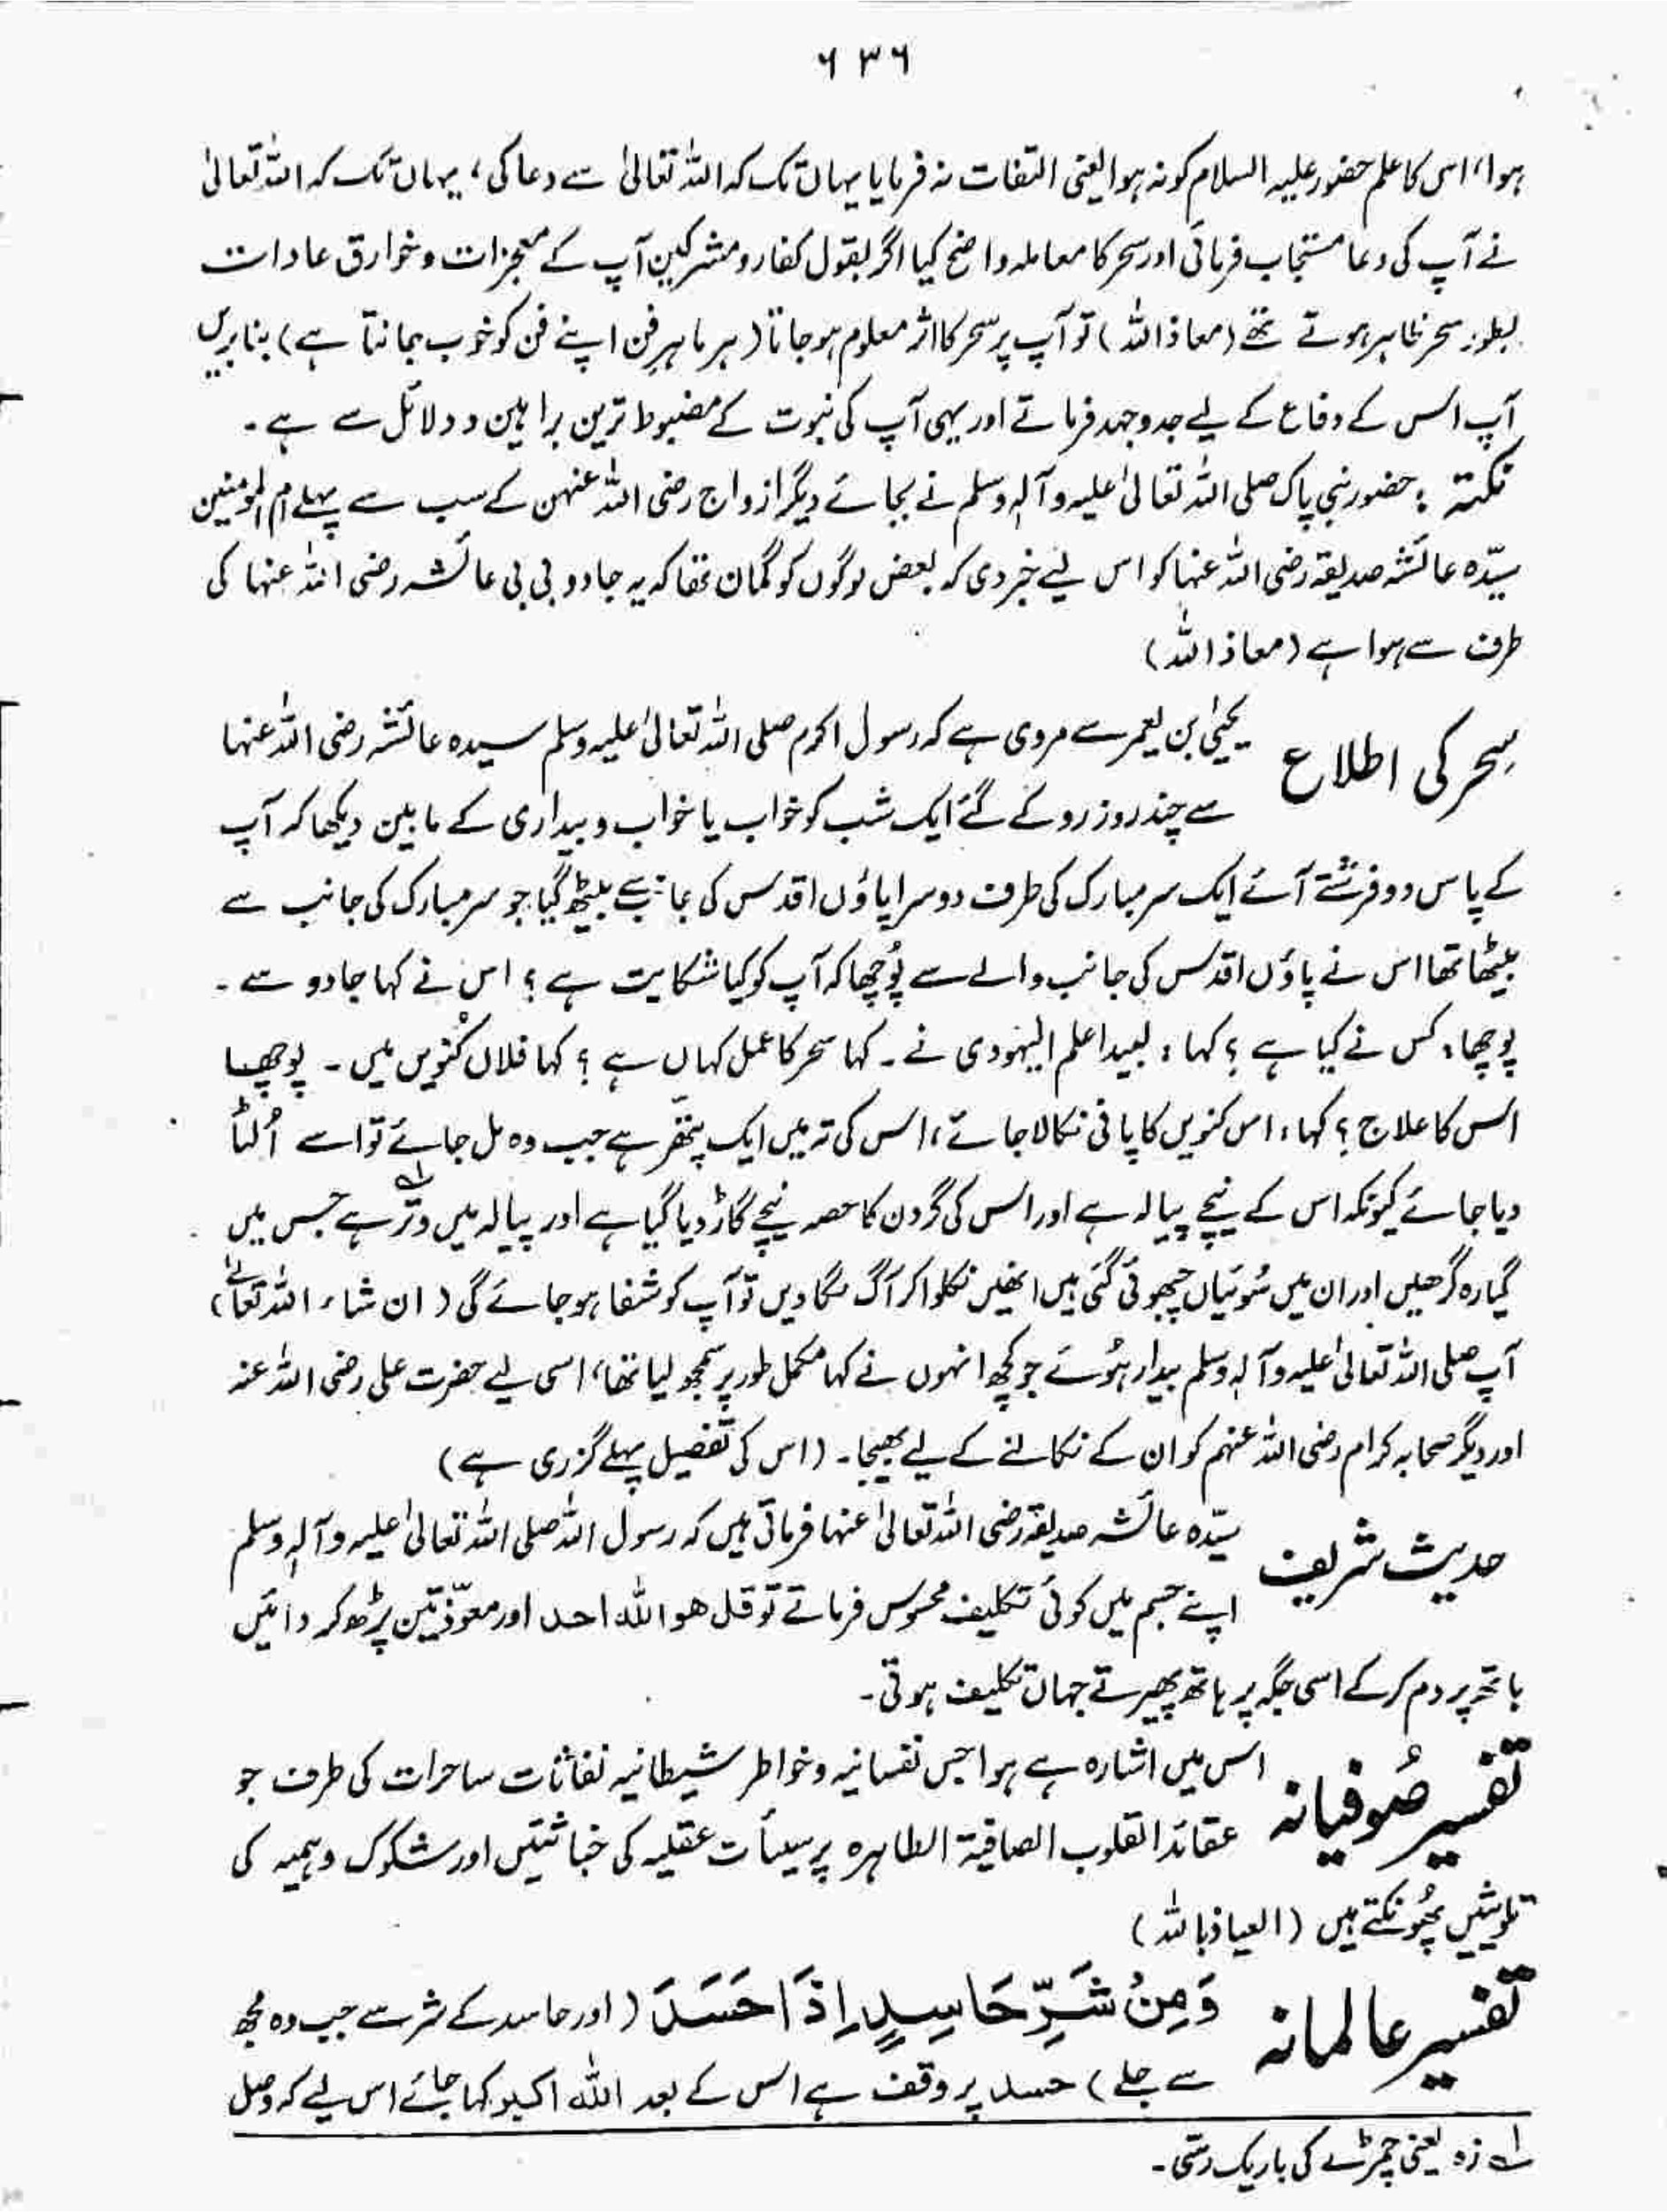 ۶۳۶
ہوا، اس کا علم حضور علیہ السلام کو نہ ہوا یعنی التفات نہ فرمایا یہاں تک کہ اللہ تعالیٰ سے دعا کی، یہاں تک کہ اللہ تعالیٰ
نے آپ کی دعا مستجاب فرمائی اور سحر کا معاملہ واضح کیا اگر بقول کفار و مشرکین آپ کے معجزات و خوارق عادات
بطور سحر ظاہر ہوتے تھے (معاذ اللہ) تو آپ پر سحر کا اثر معلوم ہو جاتا (ہر ماہرِ فن اپنے فن کو خوب جانتا ہے) بنابریں
آپ اس کے دفاع کے لیے جدوجہد فرماتے اور یہی آپ کی نبوت کے مضبوط ترین براہین و دلائل سے ہے۔
نکتہ : حضور نبی پاک صلی اللہ تعالیٰ علیہ وآلہٖ وسلم نے بجائے دیگر ازواج رضی اللہ عنہن کے سب سے پہلے ام المومنین
سیّدہ عائشہ صدیقہ رضی اللہ عنہا کو اس لیے خبر دی کہ بعض لوگوں کو گمان تھا کہ یہ جادو بی بی عائشہ رضی اللہ عنہا کی
طرف سے ہوا ہے (معاذ اللہ)
سِحر کی اطلاع یحییٰ بن یعمر سے مروی ہے کہ رسول اکرم صلی اللہ تعالیٰ علیہ وسلم سیدہ عائشہ رضی اللہ عنہا
سے چند روز روکے گئے ایک شب کو خواب یا خواب و بیداری کے مابین دیکھا کہ آپ
کے پاس دو فرشتے آئے ایک سر مبارک کی طرف دوسرا پاؤں اقدس کی جانب بیٹھ گیا جو سر مبارک کی جانب سے
بیٹھا تھا اس نے پاؤں اقدس کی جانب والے سے پُوچھا کہ آپ کو کیا شکایت ہے ؟ اس نے کہا جادو سے۔
پوچھا، کس نے کیا ہے ؟ کہا، لبید اعلم الیہودی نے۔ کہا سحر کا عمل کہاں ہے ؟ کہا فلاں کنُویں میں۔ پوچھا
اس کا علاج ؟ کہا، اس کنویں کا پانی نکالا جائے، اس کی تہ میں ایک پتھر ہے جب وہ مل جائے تو اسے اُلٹا
دیا جائے کیونکہ اس کے نیچے پیالہ ہے اور اس کی گردن کا حصہ نیچے گاڑ دیا گیا ہے اور پیالہ میں وتر ہے جس میں
گیارہ گرھیں اور ان میں سُوئیاں چبھوئی گئی ہیں انھیں نکلوا کر آگ لگا دیں تو آپ کو شفا ہو جائے گی (ان شاء اللہ تعالےٰ)
آپ صلی اللہ تعالیٰ علیہ وآلہٖ وسلم بیدار ہُوئے جو کچھ انہوں نے کہا مکمل طور پر سمجھ لیا تھا، اسی لیے حضرت علی رضی اللہ عنہ
اور دیگر صحابہ کرام رضی اللہ عنہم کو ان کے نکالنے کے لیے بھیجا۔ (اس کی تفصیل پہلے گزری ہے)
حدیث شریف سیّدہ عائشہ صدیقہ رضی اللہ تعالیٰ عنہا فرماتی ہیں کہ رسول اللہ صلی اللہ تعالیٰ علیہ وآلہٖ وسلم
اپنے جسم میں کوئی تکلیف محسوس فرماتے تو قل ھو اللہ احد اور معوّذتین پڑھ کر دائیں
ہاتھ پر دم کر کے اسی جگہ پر ہاتھ پھیرتے جہاں تکلیف ہوتی۔
تفسیر صُوفیانہ اس میں اشارہ ہے ہواجس نفسانیہ و خواطر شیطانیہ نفاثات ساحرات کی طرف جو
عقائد القلوب الصافیۃ الطاہرہ پر سیئات عقلیہ کی خباثتیں اور شکوک وہمیہ کی
تلویثیں پھُونکتے ہیں (العیاذ باللہ)
تفسیر عالمانہ وَمِنْ شَرِّ حَاسِدٍ اِذَا حَسَدَ (اور حاسد کے شر سے جب وہ مجھ
سے جلے) حسد پر وقف ہے اس کے بعد اللہ اکبر کہا جائے اس لیے کہ وصل
لہ زہ یعنی چمڑے کی باریک رسّی۔